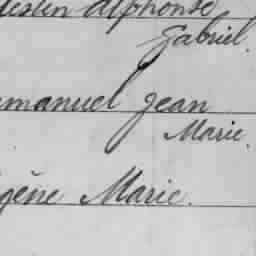 lestin Alphonse
Gabriel.
manuel Jean
Marie.
gène Marie.